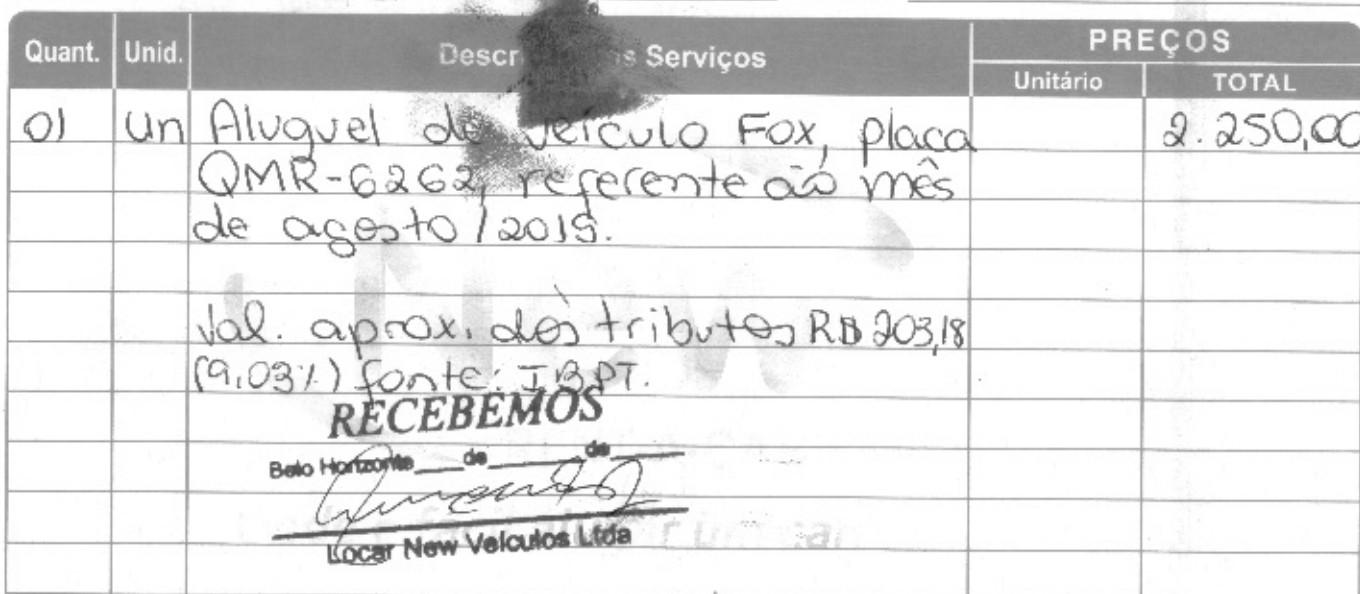 Quant. Unid. Serviços PREÇOS
Unitário TOTAL
01 un Aluguel de veículo Fox, placa 2.250,00
QMR-6262, referente ao mês
de agosto/2019.
Val. aprox. dos tributos R$ 203,18
(9,03%) fonte: IBPT.
RECEBEMOS
Belo Horizonte ___ de ______ de ______
Locar New Veículos Ltda